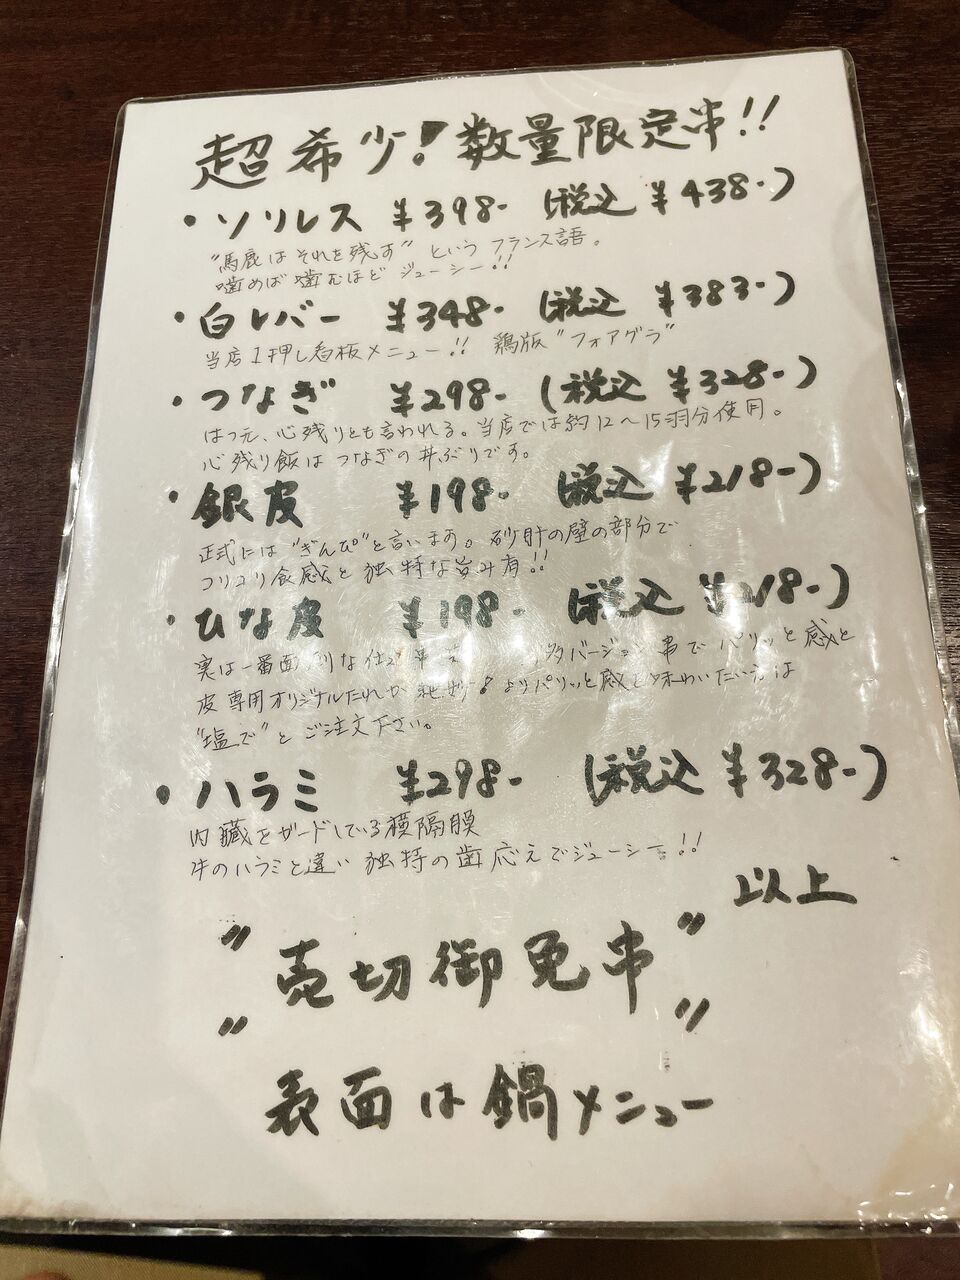 超希少!数量限定串!!
・ソリレス ¥398- (税込 ¥438-)
"馬鹿はそれを残す" という フランス語。
噛めば噛むほど ジューシー!!
・白レバー ¥348- (税込 ¥383-)
当店1押し看板メニュー!! 鶏版 "フォアグラ"
・つなぎ ¥298- (税込 ¥328-)
はつ元、心残りとも言われる。当店では約12〜15羽分使用。
心残り飯は つなぎの丼ぶりです。
・銀皮 ¥198- (税込 ¥218-)
正式には "ぎんぴ" と言います。砂肝の壁の部分で
コリコリ食感と 独特な旨み有!!
・ひな皮 ¥198- (税込 ¥218-)
実は一番面倒な仕込み串 バージョン串でパリッと感と
皮専用オリジナルたれが絶妙! よりパリッと感を味わいたい方は
"塩で" と ご注文下さい。
・ハラミ ¥298- (税込 ¥328-)
内臓をガードしている横隔膜
牛のハラミと違い 独特の歯応えでジューシー!!
以上
"売切御免串"
表面は鍋メニュー